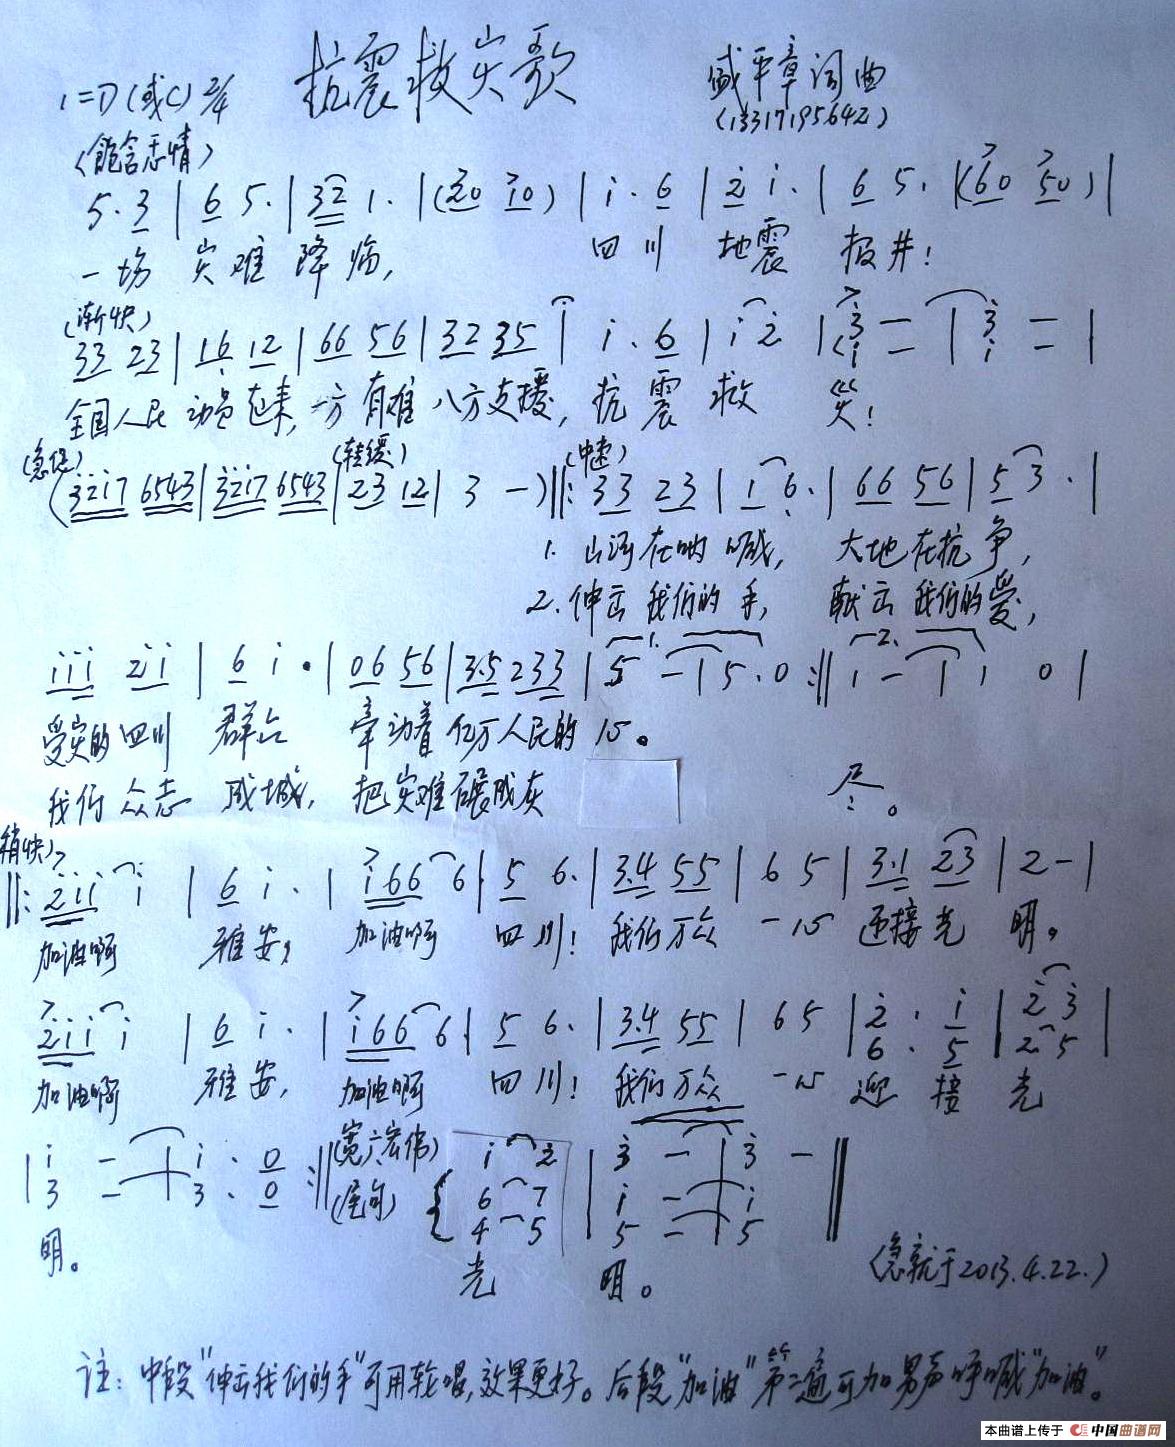 抗震救灾歌
1=D(或C) 2/4
盛平章词曲
(13317195642)
(饱含悲情)
5. 3 | 6 5. | 32 1. | (20 10) | i. 6 | 2 i. | 6 5. | (60 50) |
一场 灾难 降临, 四川 地震 报井!
(渐快)
33 23 | 16 12 | 66 56 | 32 35 | i. 6 | i 2 | 3 — | 3 — |
i — | i — |
全国人民 动员起来, 一方有难 八方支援, 抗震救 灾!
(急促) (转缓) (中速)
(3217 6543 | 3217 6543 | 23 12 | 3 —) ‖: 33 23 | 1 6. | 66 56 | 5 3. |
1. 山河在呐喊, 大地在抗争,
2. 伸出我们的手, 献出我们的爱,
1. 2.
iii 2ii | 6 i. | 06 56 | 3.5 233 | 5 — | 5. 0 :‖ i — | i 0 |
受灾的四川 群众 牵动着亿万人民的心。
我们众志 成城, 把灾难碾成灰 尽。
稍快)
‖: 2ii i | 6 i. | i66 6 | 5 6. | 3.4 55 | 6 5 | 3.1 23 | 2 — |
加油啊 雅安, 加油啊 四川! 我们万众 一心 迎接光 明。
2ii i | 6 i. | i66 6 | 5 6. | 3.4 55 | 6 5 | 2. i | 2 3 |
6. 5 | 2 5 |
加油啊 雅安, 加油啊 四川! 我们万众 一心 迎接 光
(宽广宏伟)
| i — | i. 0 :‖ i 2 | 3 — | 3 — ‖
3 — | 3. 0 (尾句) 6 7 | i — | i
4 5 | 5 — | 5
明。 光 明。
(急就于2013.4.22.)
注: 中段"伸出我们的手"可用轮唱,效果更好。后段"加油"第二遍可加男声呼喊"加油"。
本曲谱上传于 中国曲谱网